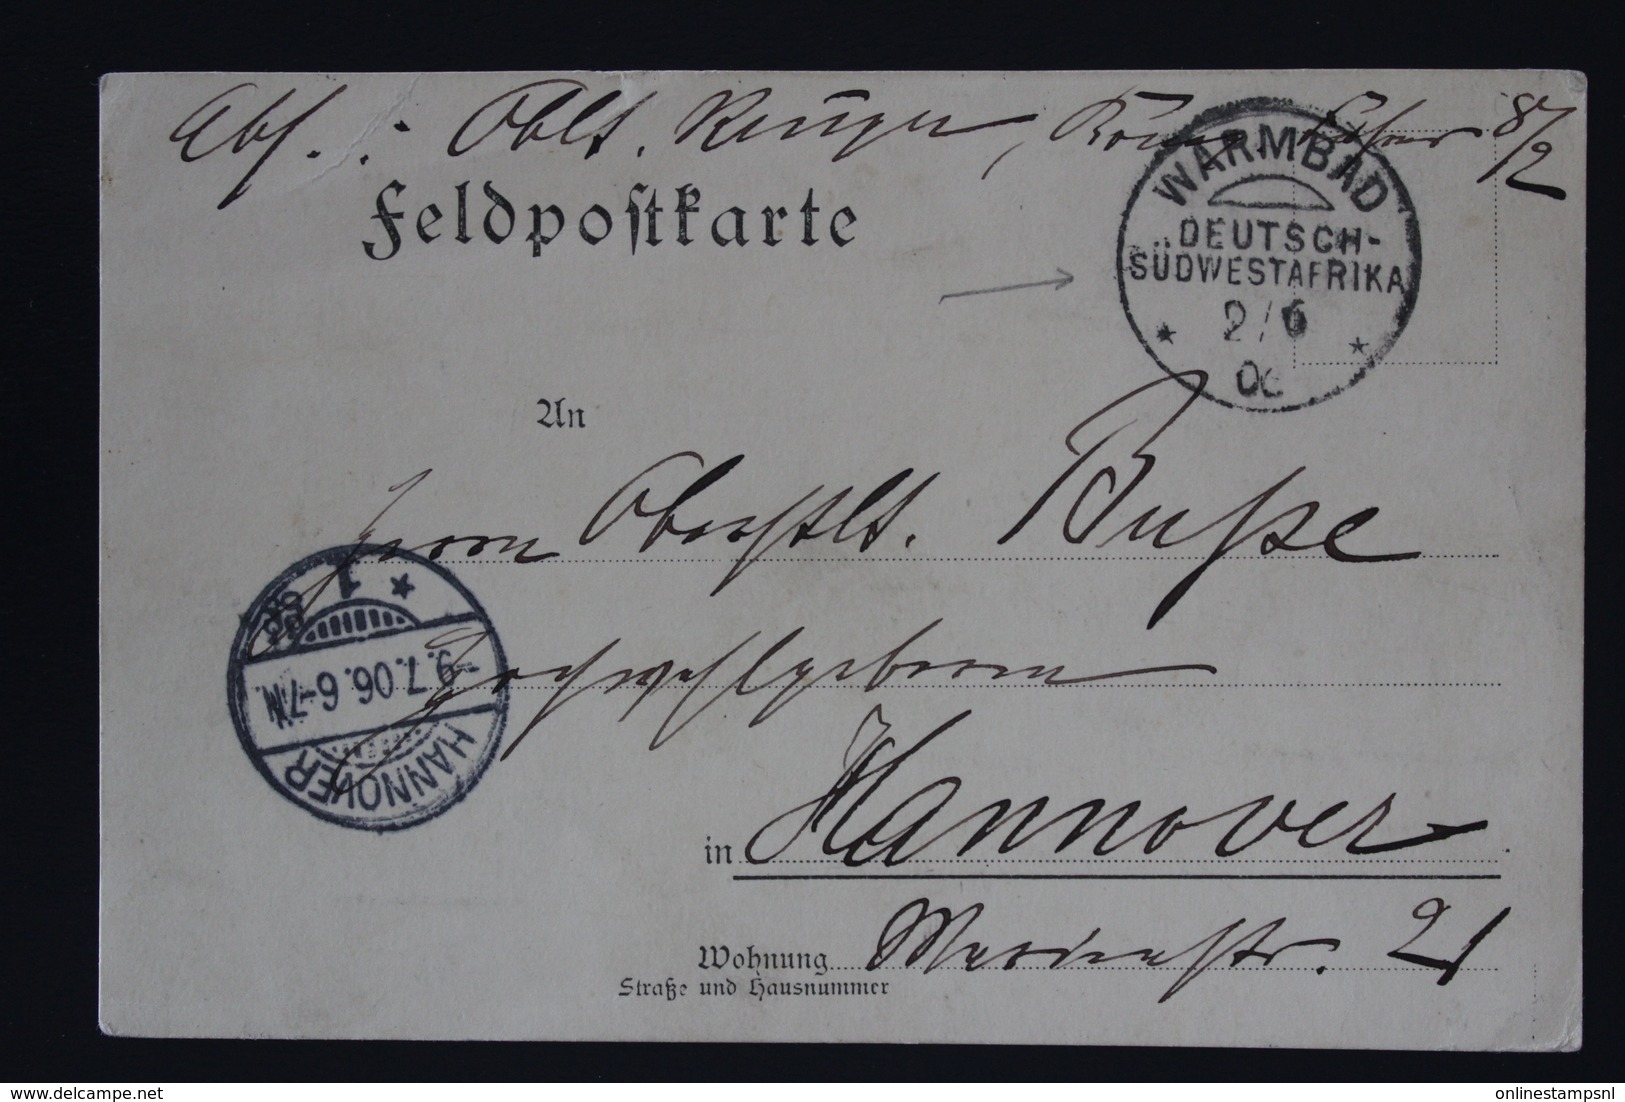 Abs. : Oblt.
8/2
Feldpostkarte
WARMBAD
DEUTSCH-
SÜDWESTAFRIKA
2/6
06
An
Herrn Oberstlt. Buße
Hochwohlgeboren
1
9.7.06.6-7N.
HANNOVER
in Hannover
Wohnung Marienstr. 21
Straße und Hausnummer
onlinestampsnl